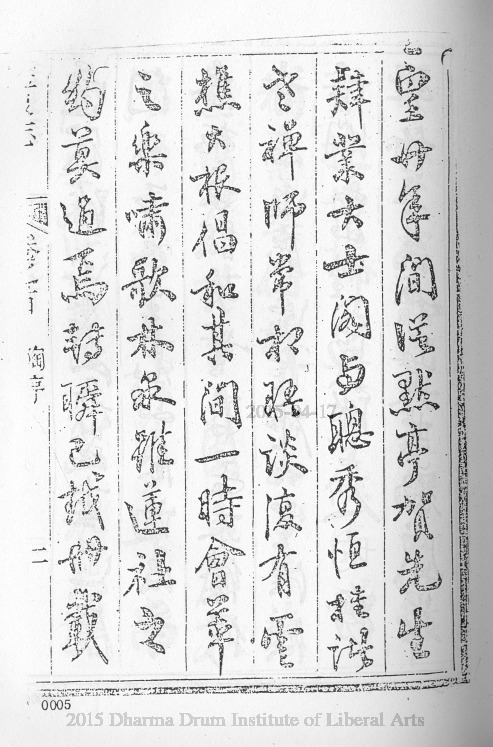 皇廿年間從點亭賀先生
肄業大士閣與聰秀恒桂諸
老禪師常相聚談復有雪
樵大根倡和其間一時會萃
之樂嘯歌林泉雖蓮社之
約莫過焉轉瞬已越卅載
二
0005
2015 Dharma Drum Institute of Liberal Arts